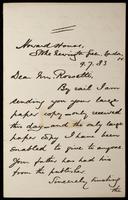 Howard House,
Stoke Newington Green, London
9.7.83
Dear Mr Rossetti,
By rail I am
sending you your large
paper copy only received
this day and the only large
paper copy I have been
enabled to give to anyone
Your father has had his
from the publisher
Sincerely trusting
the